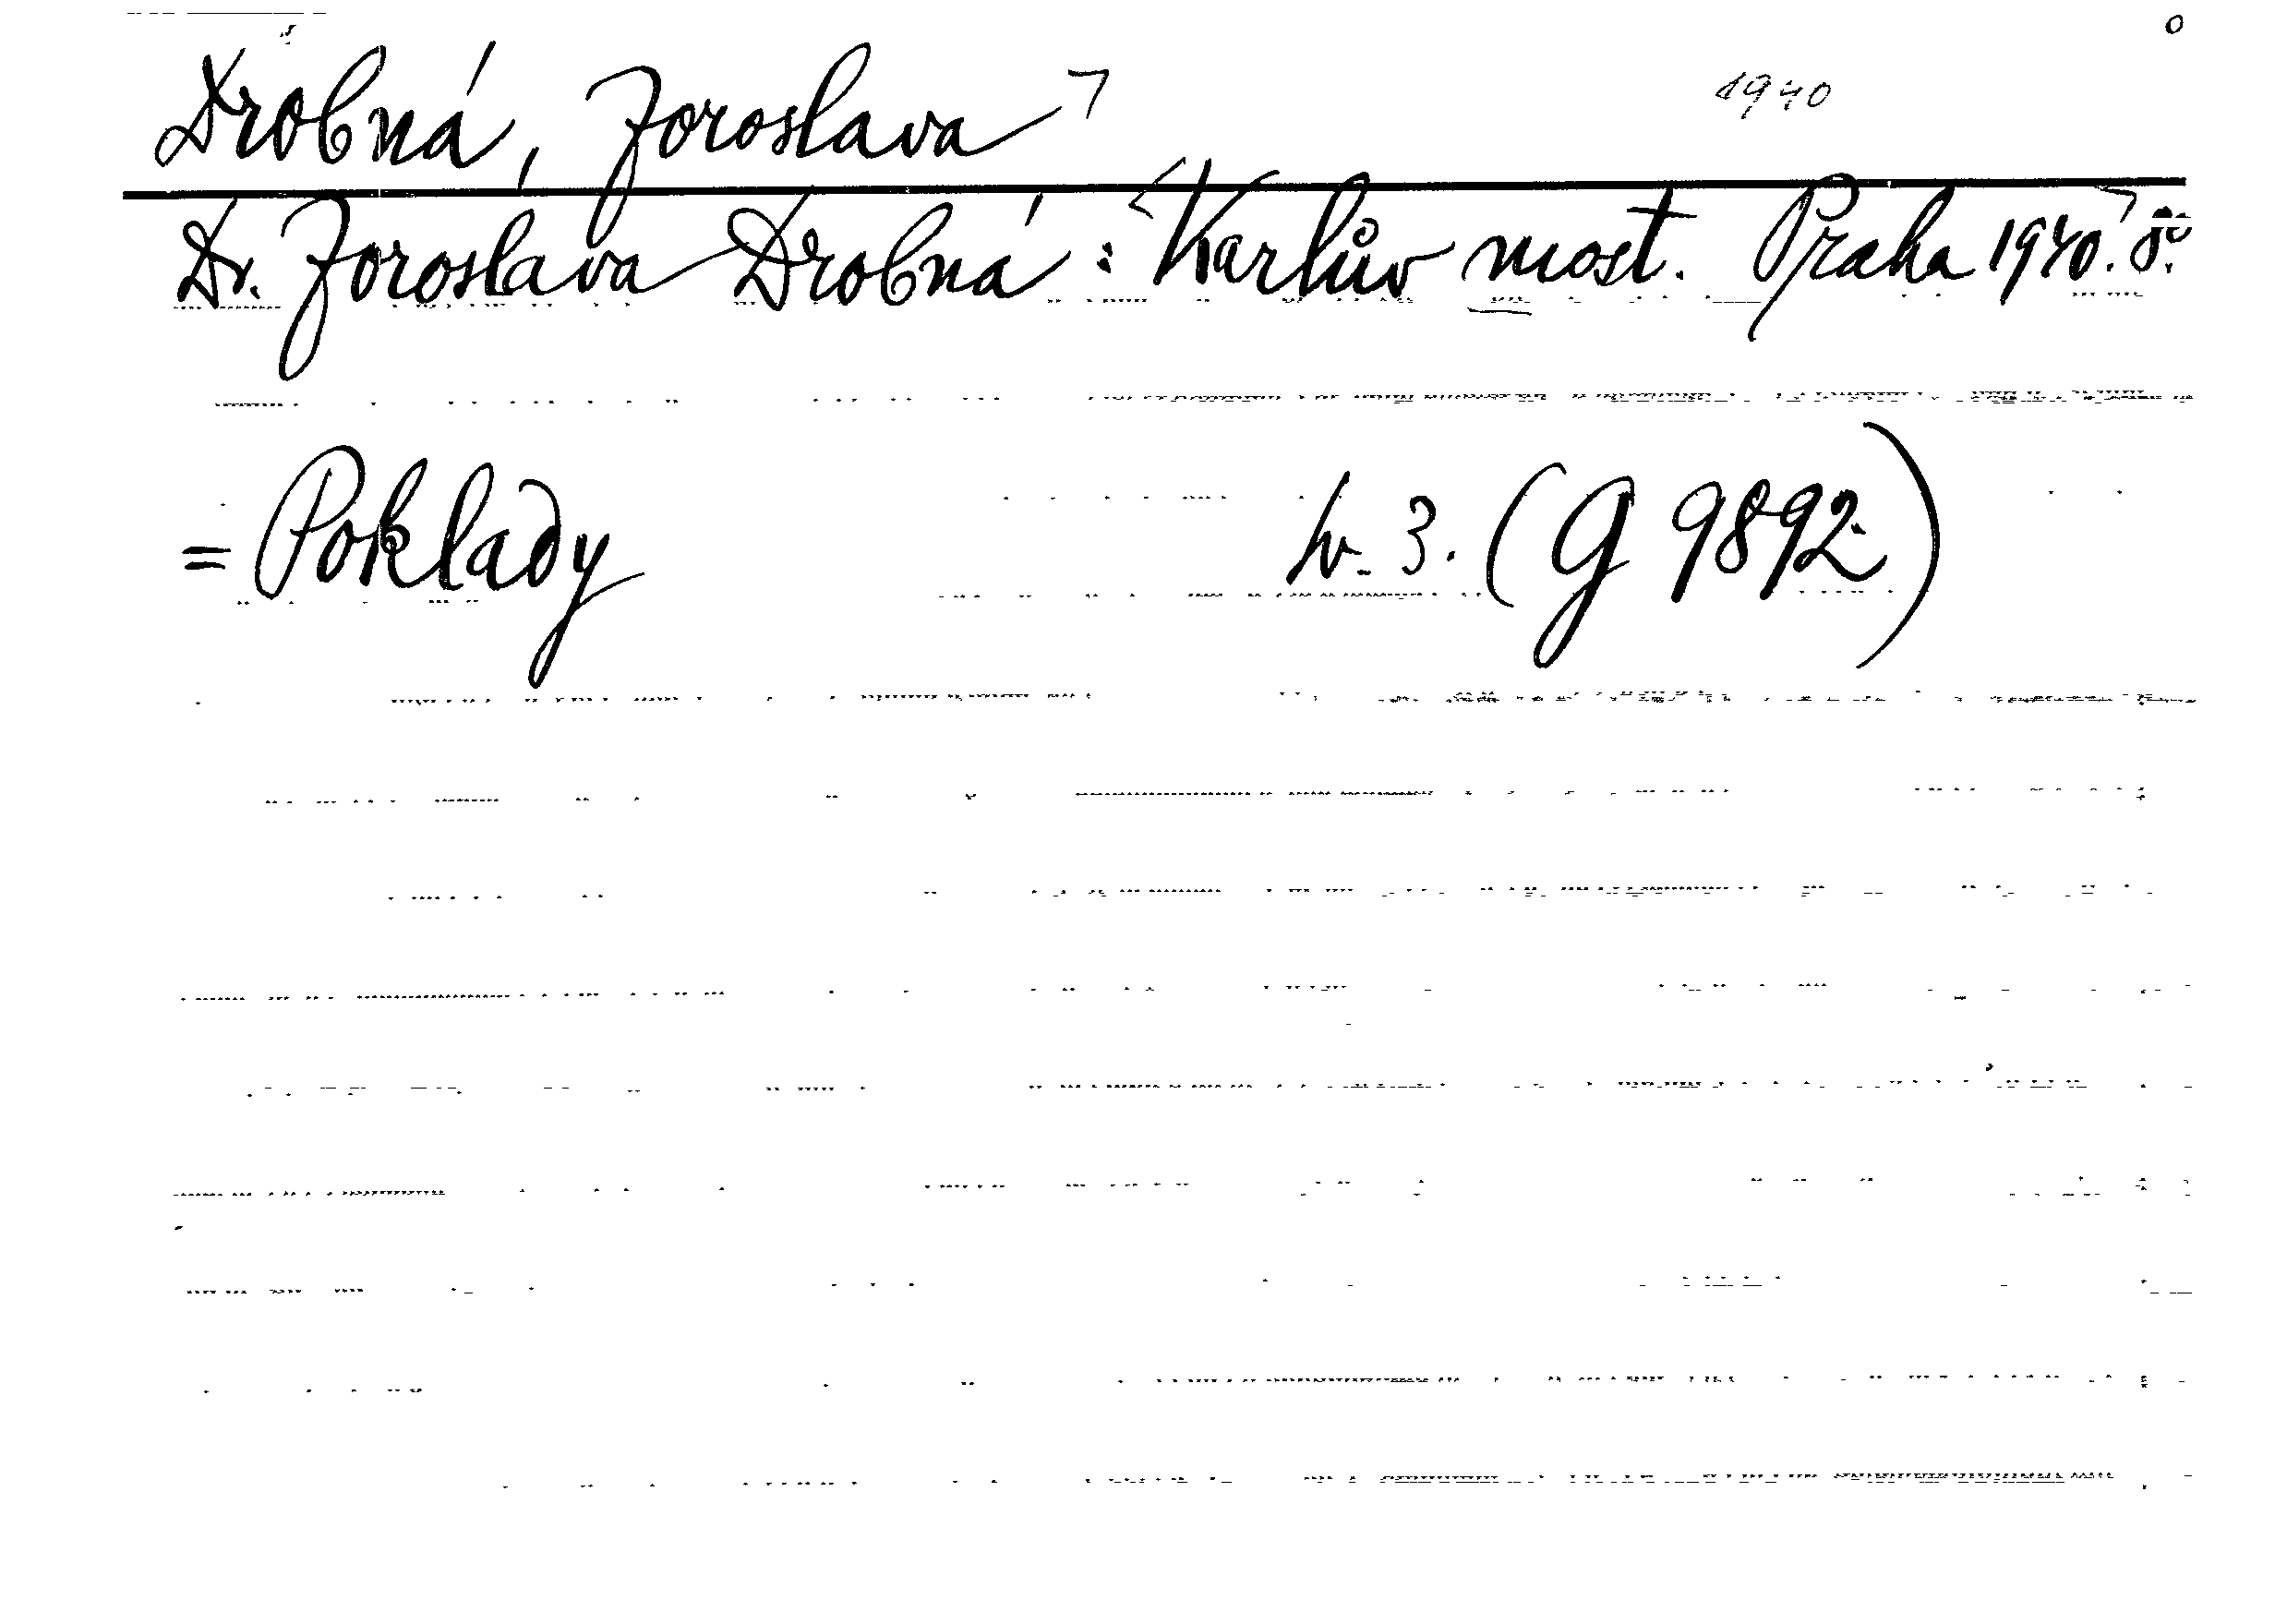 1940
Drobná, Zoroslava
Dr. Zoroslava Drobná: Karlův most. Praha 1940. 8°.
= Poklady sv. 3. (G 9892)